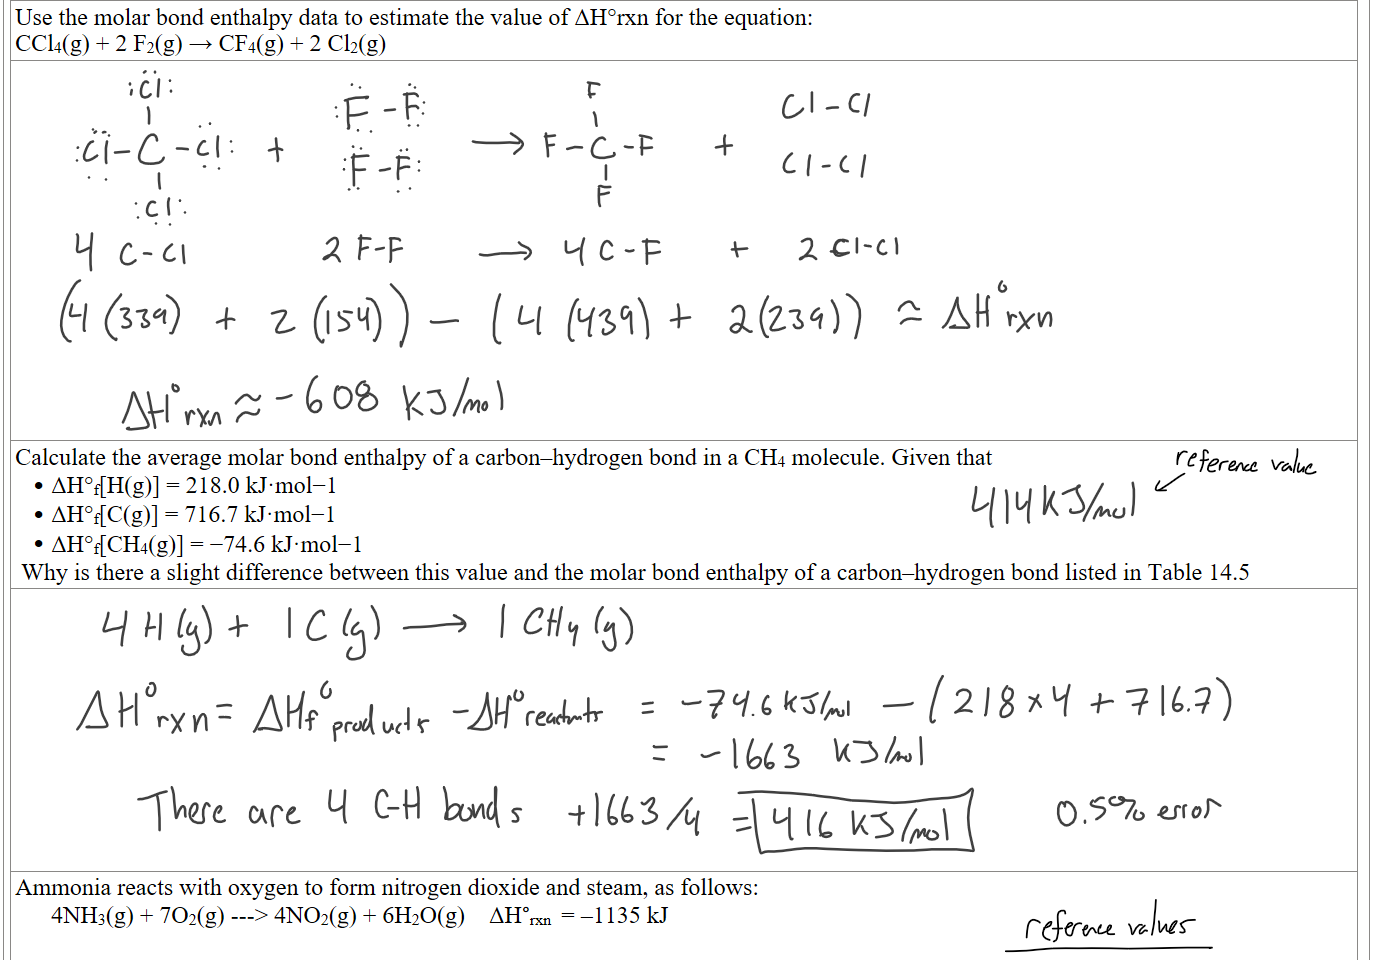 Use the molar bond enthalpy data to estimate the value of ΔH°rxn for the equation:
CCl4(g) + 2 F2(g) → CF4(g) + 2 Cl2(g)
:Cl:
:Cl-C-Cl: +
:Cl:
:F-F:
:F-F:
→
F
F-C-F
F
+
Cl-Cl
Cl-Cl
4 C-Cl 2 F-F → 4 C-F + 2 Cl-Cl
(4 (339) + 2 (154)) - (4 (439) + 2(239)) ≈ ΔH°rxn
ΔH°rxn ≈ -608 KJ/mol
Calculate the average molar bond enthalpy of a carbon–hydrogen bond in a CH4 molecule. Given that
• ΔH°f[H(g)] = 218.0 kJ·mol−1
• ΔH°f[C(g)] = 716.7 kJ·mol−1
• ΔH°f[CH4(g)] = −74.6 kJ·mol−1
reference value
414 KJ/mol
Why is there a slight difference between this value and the molar bond enthalpy of a carbon–hydrogen bond listed in Table 14.5
4 H (g) + 1 C (g) → 1 CH4 (g)
ΔH°rxn = ΔHf° products - ΔH° reactants = -74.6 KJ/mol - (218 × 4 + 716.7)
= -1663 KJ/mol
There are 4 C-H bonds +1663/4 = 416 KJ/mol 0.5% error
Ammonia reacts with oxygen to form nitrogen dioxide and steam, as follows:
4NH3(g) + 7O2(g) ---> 4NO2(g) + 6H2O(g) ΔH°rxn = –1135 kJ
reference values